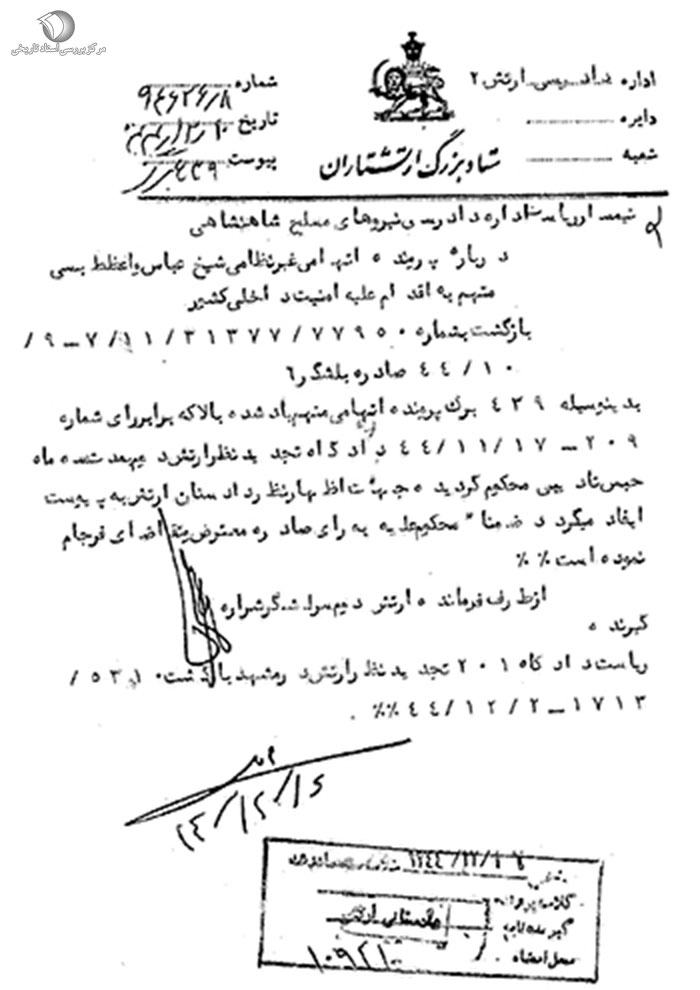 مرکز بررسی اسناد تاریخی
اداره دادرسی ارتش ۲
دایره
شعبه
ستاد بزرگ ارتشتاران
شماره
تاریخ
پیوست ۴۳۹ برگ
تیمسار ریاست اداره دادرسی نیروهای مسلح شاهنشاهی
درباره پرونده اتهامی غیرنظامی شیخ عباس واعظ طبسی
متهم به اقدام علیه امنیت داخلی کشور
بازگشت بشماره ۷۷۹۵۰/۳۱۳۷۷/۱۱/۷ــ۹/
۴۴/۱۰ صادره بلشگر ۶
بدینوسیله ۴۳۹ برگ پرونده اتهامی متهم یاد شده بالا که برابر رای شماره
۲۰۹ــ۴۴/۱۱/۱۷ دادگاه تجدید نظر ارتش در مشهد ماه
حبس تادیبی محکوم گردیده جهت اظهار نظر دادستان ارتش به پیوست
ایفاد میگردد ضمنا" محکوم علیه به رای صادره معترض و تقاضای فرجام
نموده است٪٪
از طرف فرمانده ارتش
گیرنده
ریاست دادگاه ۲۰۱ تجدید نظر ارتش در مشهد بازگشت ۵۳۰۱/
۱۷۱۳ــ۴۴/۱۲/۲٪٪.
۱۴/۱۲/۱۶
کلاسه پرونده
گیرنده نامه دادستانی ارتش
محل امضاء